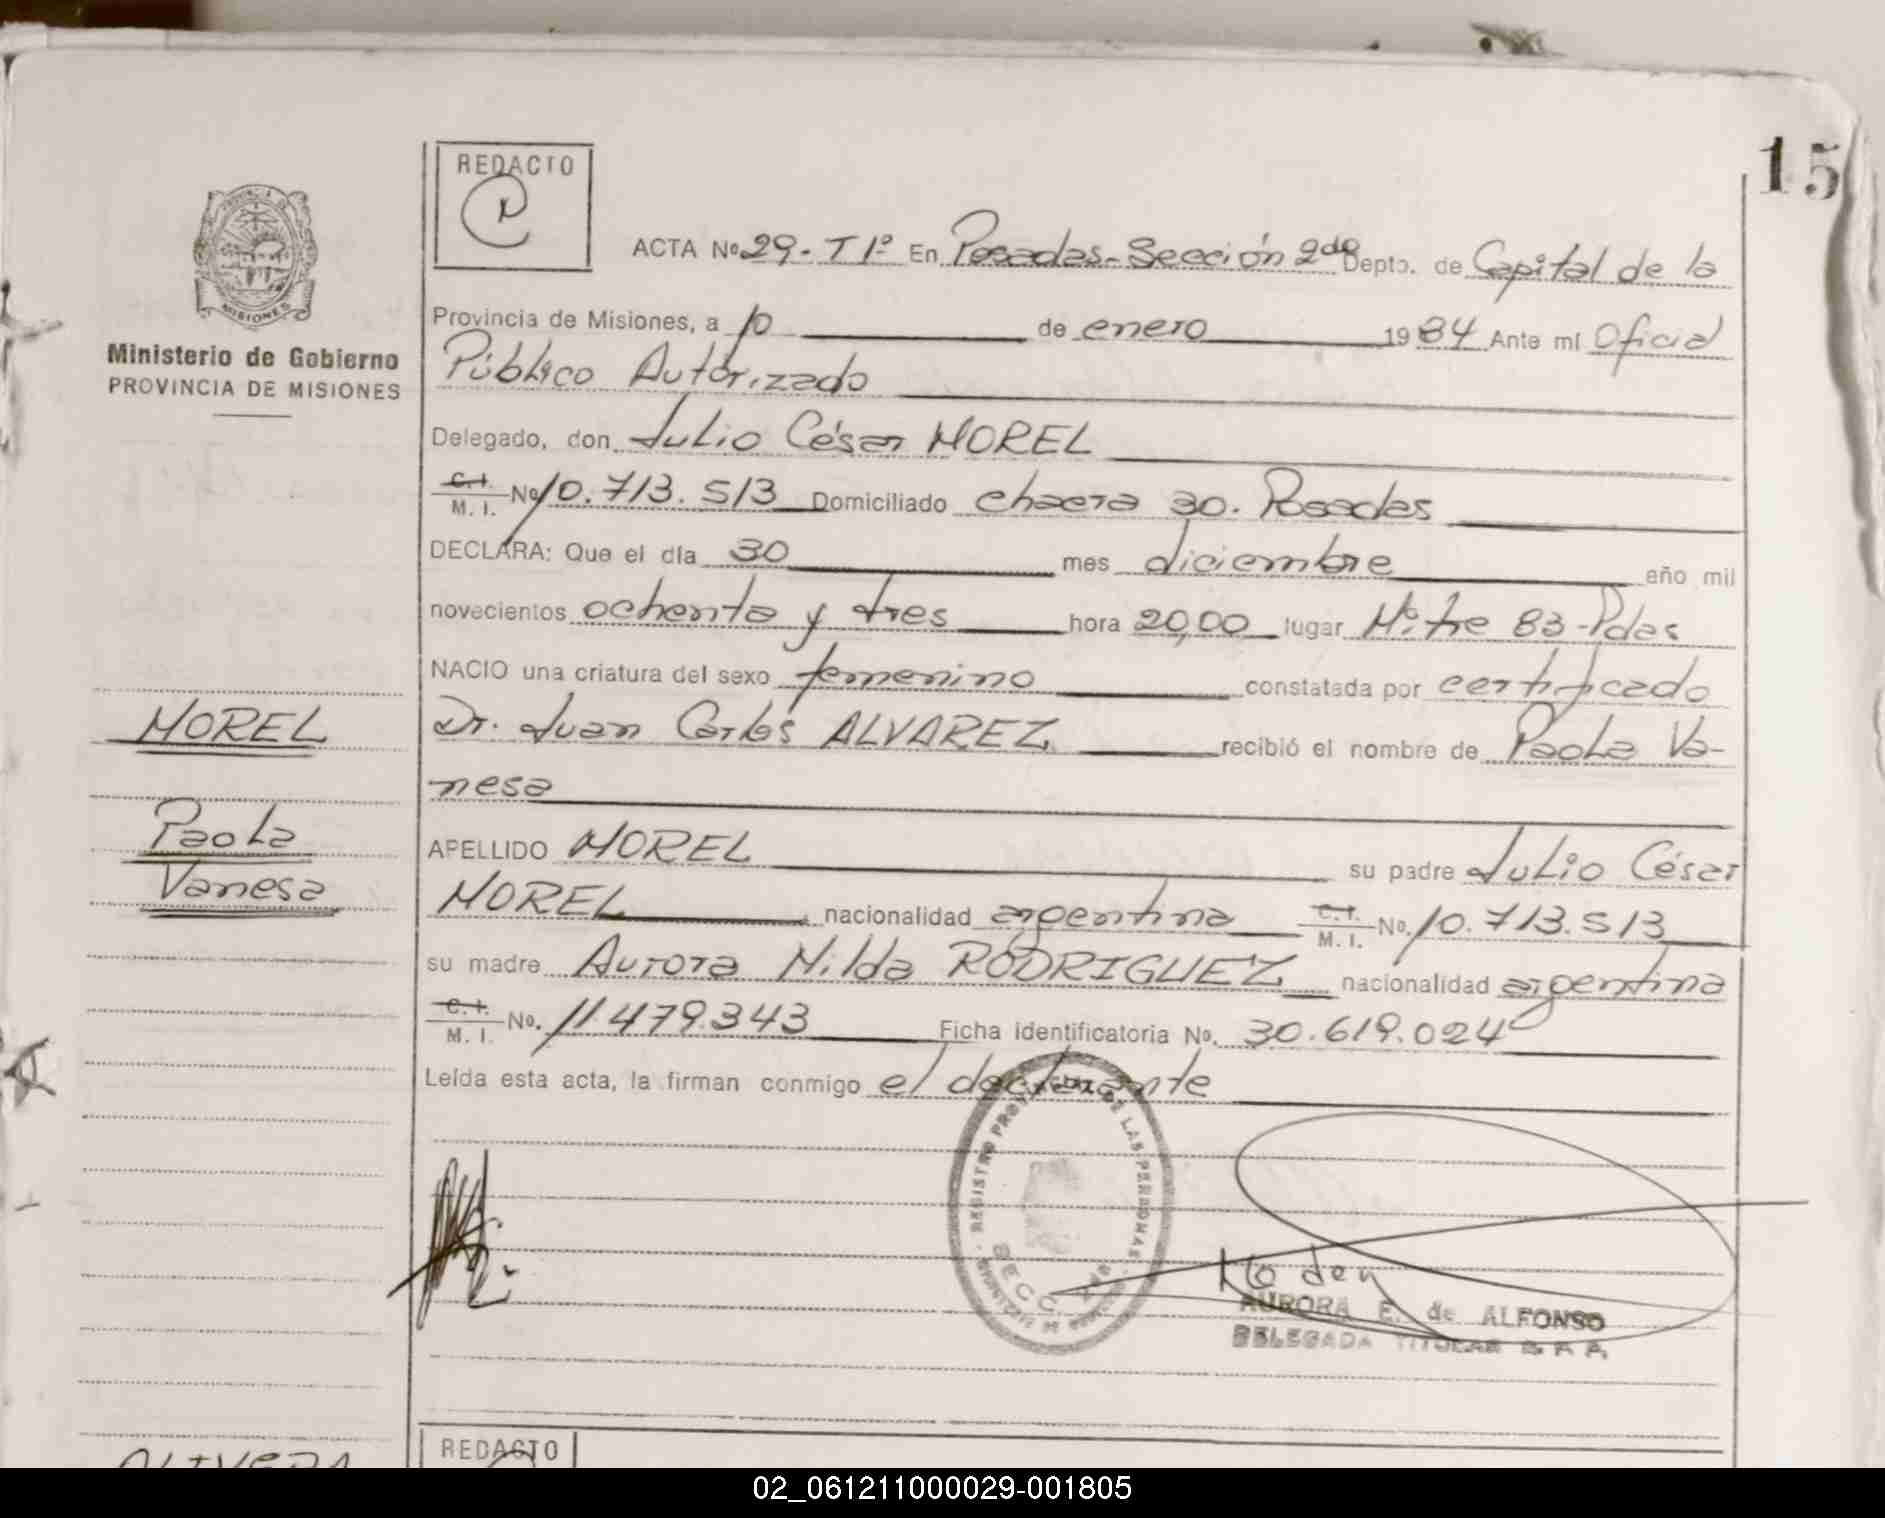 15
REDACTO
ACTA Nº 29-T1º En Posadas-Sección 2da Depto. de Capital de la
Provincia de Misiones, a 10 de enero 1984 Ante mí Oficial
Público Autorizado
Delegado, don Julio César MOREL
C.I. M.I. Nº 10.713.513 Domiciliado chacra 30. Posadas
DECLARA: Que el día 30 mes diciembre año mil
novecientos ochenta y tres hora 20,00 lugar Mitre 83-Pdas
NACIO una criatura del sexo femenino constatada por certificado
Dr. Juan Carlos ALVAREZ recibió el nombre de Paola Va-
nesa
APELLIDO MOREL su padre Julio César
MOREL nacionalidad argentina C.I. M.I. No. 10.713.513
su madre Aurora Nilda RODRIGUEZ nacionalidad argentina
C.I. M.I. No. 11.479.343 Ficha identificatoria No. 30.619.024
Leída esta acta, la firman conmigo el declarante
Ministerio de Gobierno
PROVINCIA DE MISIONES
MISIONES
MOREL
Paola
Vanesa
REGISTRO PROVINCIAL DE LAS PERSONAS
SECC.
AURORA E. de ALFONSO
DELEGADA TITULAR
OLIVERA
REDACTO
02_061211000029-001805